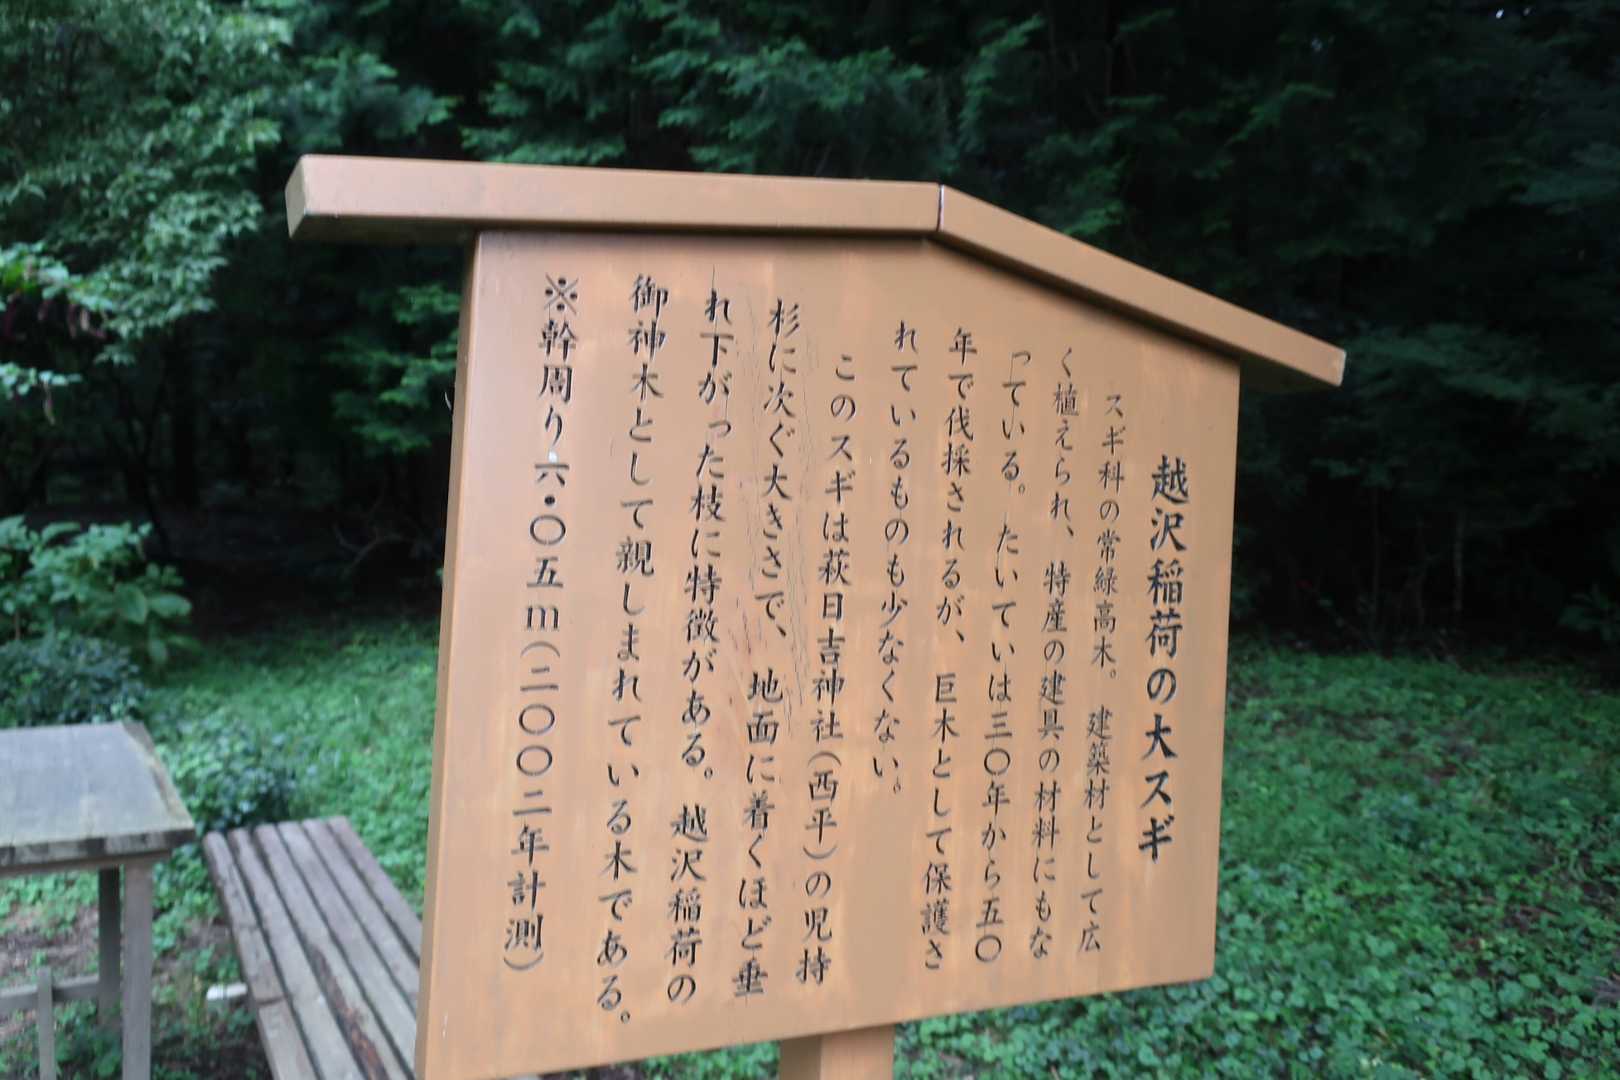 越沢稲荷の大スギ
スギ科の常緑高木。建築材として広
く植えられ、特産の建具の材料にもな
っている。たいていは三〇年から五〇
年で伐採されるが、巨木として保護さ
れているものも少なくない。
このスギは萩日吉神社(西平)の児持
杉に次ぐ大きさで、地面に着くほど垂
れ下がった枝に特徴がある。越沢稲荷の
御神木として親しまれている木である。
※幹周り六・〇五m(二〇〇二年計測)